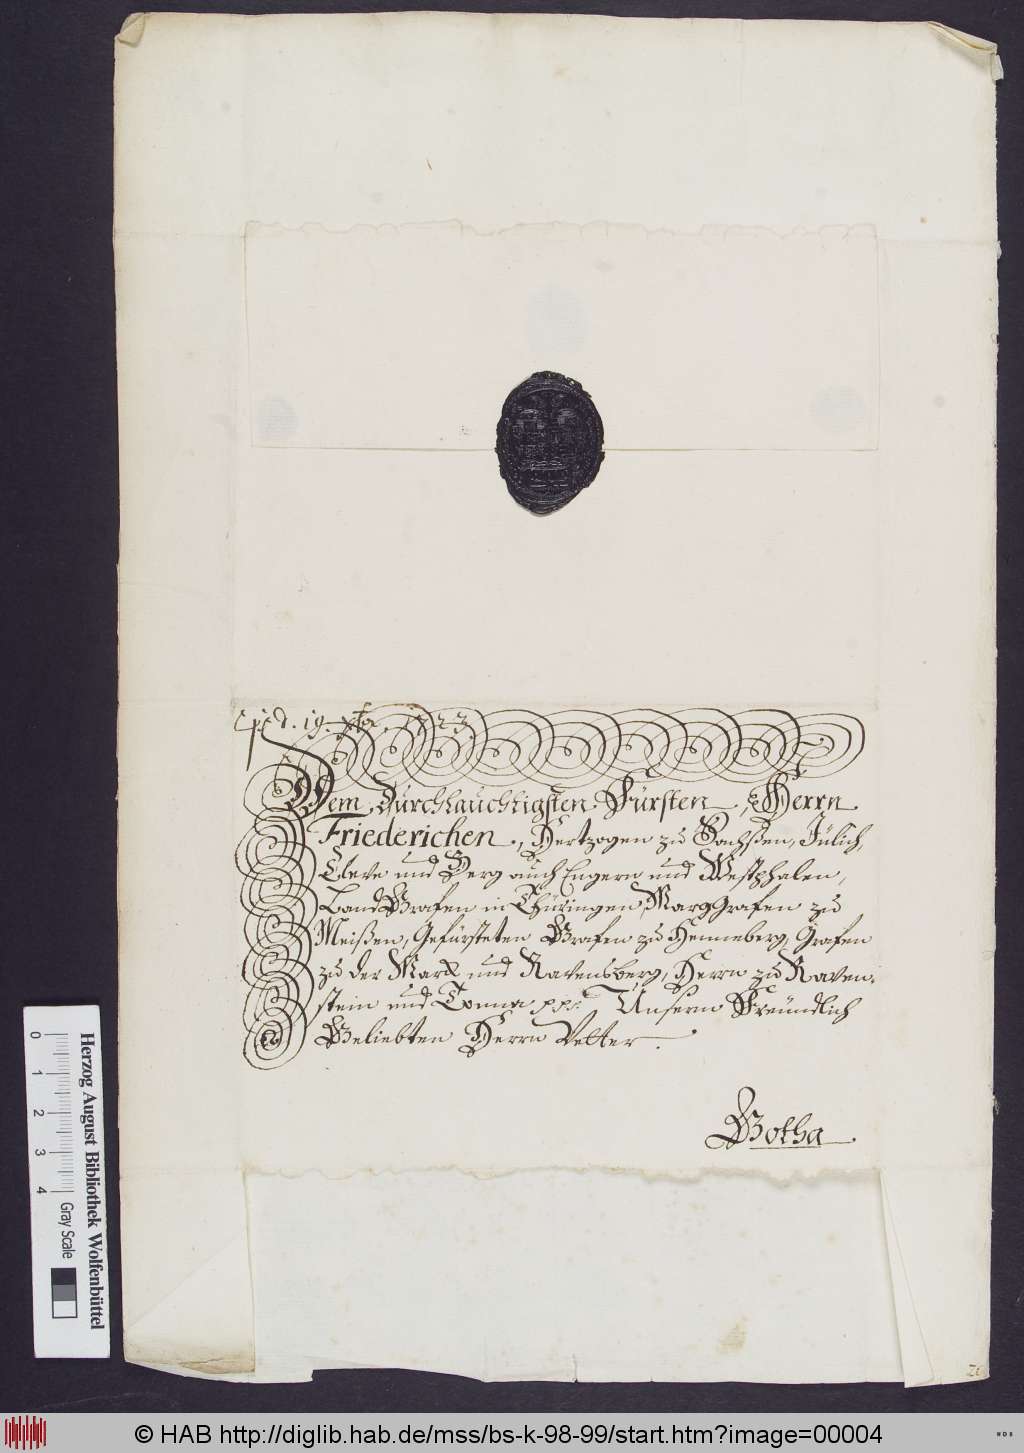 d. 19. 1723
Dem Durchlauchtigsten Fürsten, Herrn
Friederichen, Hertzogen zu Sachßen, Jülich,
Cleve und Berg auch Engern und Westphalen,
Land Grafen in Thüringen, MargGrafen zu
Meißen, Gefürsteten Grafen zu Henneberg, Grafen
zu der Marck und Ravensberg, Herrn zu Raven-
stein und Tonna pp. Unserm Freündlich
Geliebten Herrn Vetter.
Gotha
Herzog August Bibliothek Wolfenbüttel
0 1 2 3 4
Gray Scale
© HAB http://diglib.hab.de/mss/bs-k-98-99/start.htm?image=00004